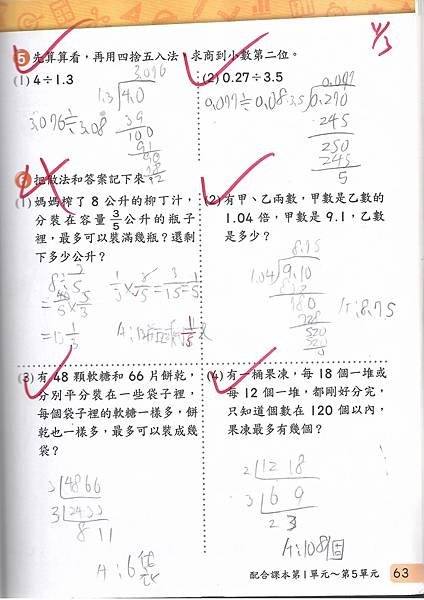 4/3
5 先算算看，再用四捨五入法，求商到小數第二位。
(1) 4÷1.3
3.076
1.3 4.0
39
100
91
3.076≒3.08
(2) 0.27÷3.5
0.077
3.5 0.270
245
250
245
5
0.077≒0.08
6 把做法和答案記下來。
(1) 媽媽榨了 8 公升的柳丁汁，
分裝在容量 3/5 公升的瓶子
裡，最多可以裝滿幾瓶？還剩
下多少公升？
(2) 有甲、乙兩數，甲數是乙數的
1.04 倍，甲數是 9.1，乙數
是多少？
8.75
1.04 9.10
832
780
728
520
520
A:8.75
(3) 有 48 顆軟糖和 66 片餅乾，
分別平分裝在一些袋子裡，
每個袋子裡的軟糖一樣多，餅
乾也一樣多，最多可以裝成幾
袋？
8 11
A:6袋
(4) 有一桶果凍，每 18 個一堆或
每 12 個一堆，都剛好分完，
只知道個數在 120 個以內，
果凍最多有幾個？
2 12 18
3 6 9
2 3
A:108個
配合課本第1單元～第5單元 63